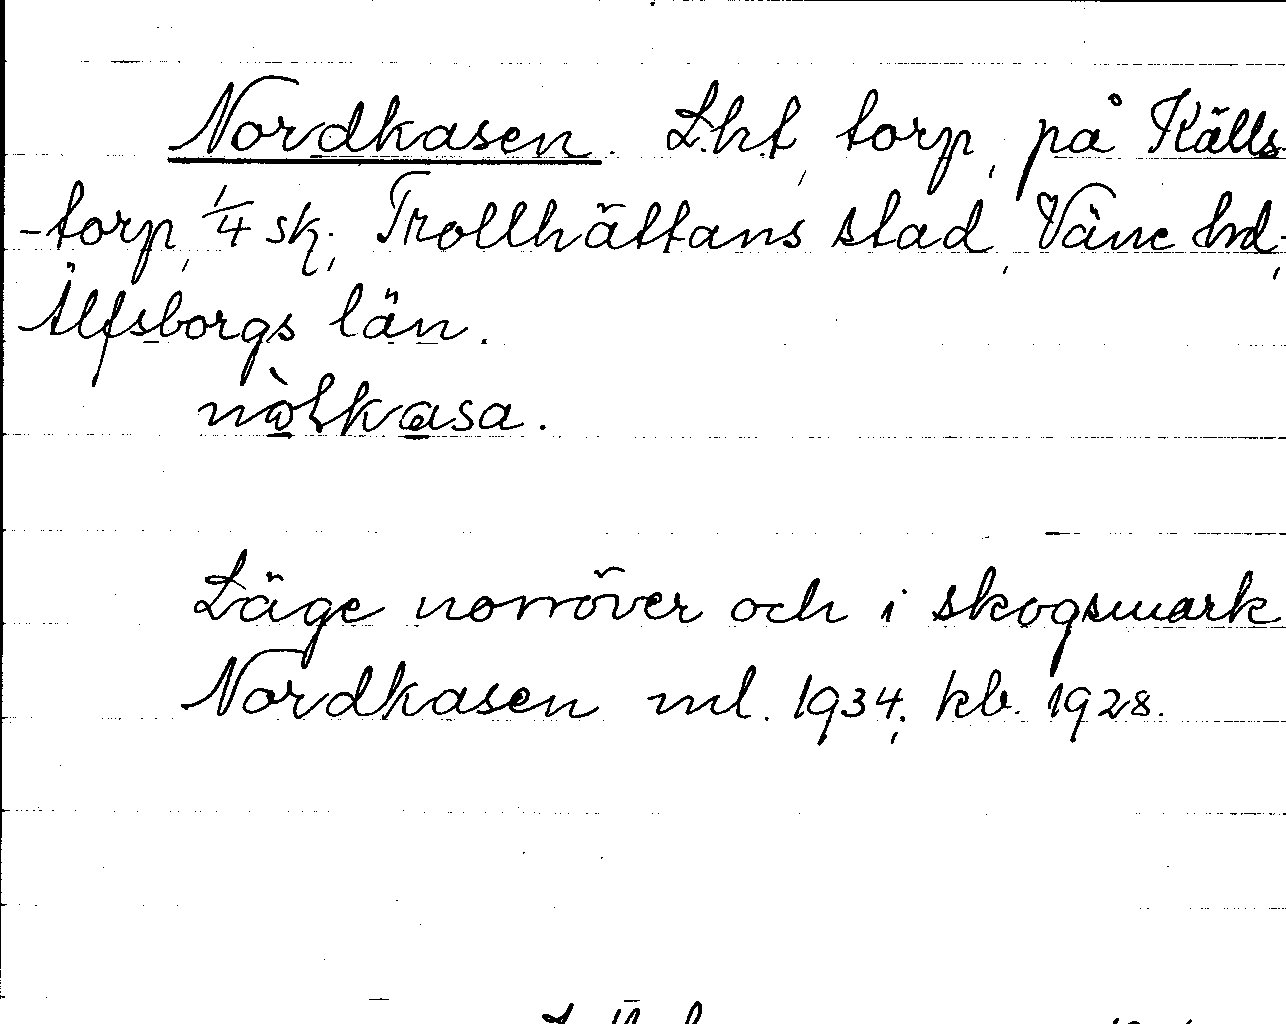 Nordkasen. Lht, torp, på Källs-
-torp, 1/4 sk; Trollhättans stad, Väne hd,
Älfsborgs län.
Läge norröver och i skogsmark
Nordkasen ml. 1934; kb. 1928.